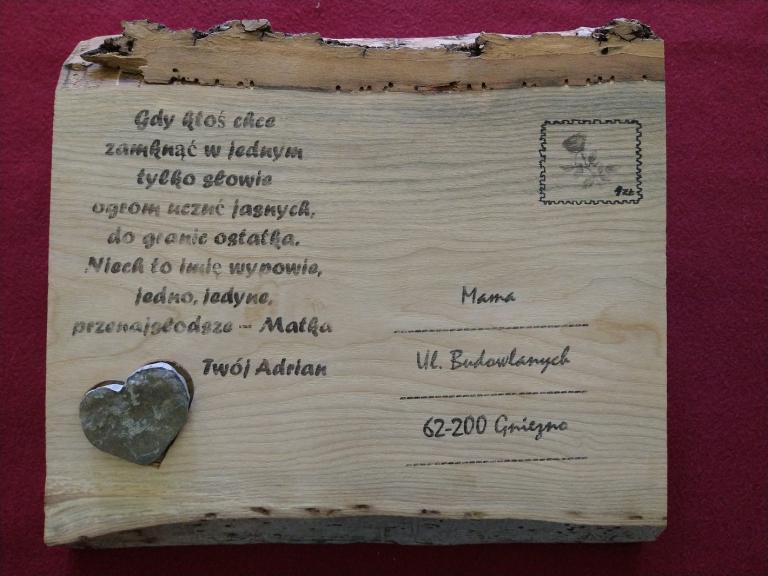 Gdy ktoś chce
zamknąć w jednym
tylko słowie
ogrom uczuć jasnych,
do granic ostatka.
Niech to imię wypowie,
jedno, jedyne,
przenajsłodsze - Matka
Twój Adrian
4zł
Mama
Ul. Budowlanych
62-200 Gniezno